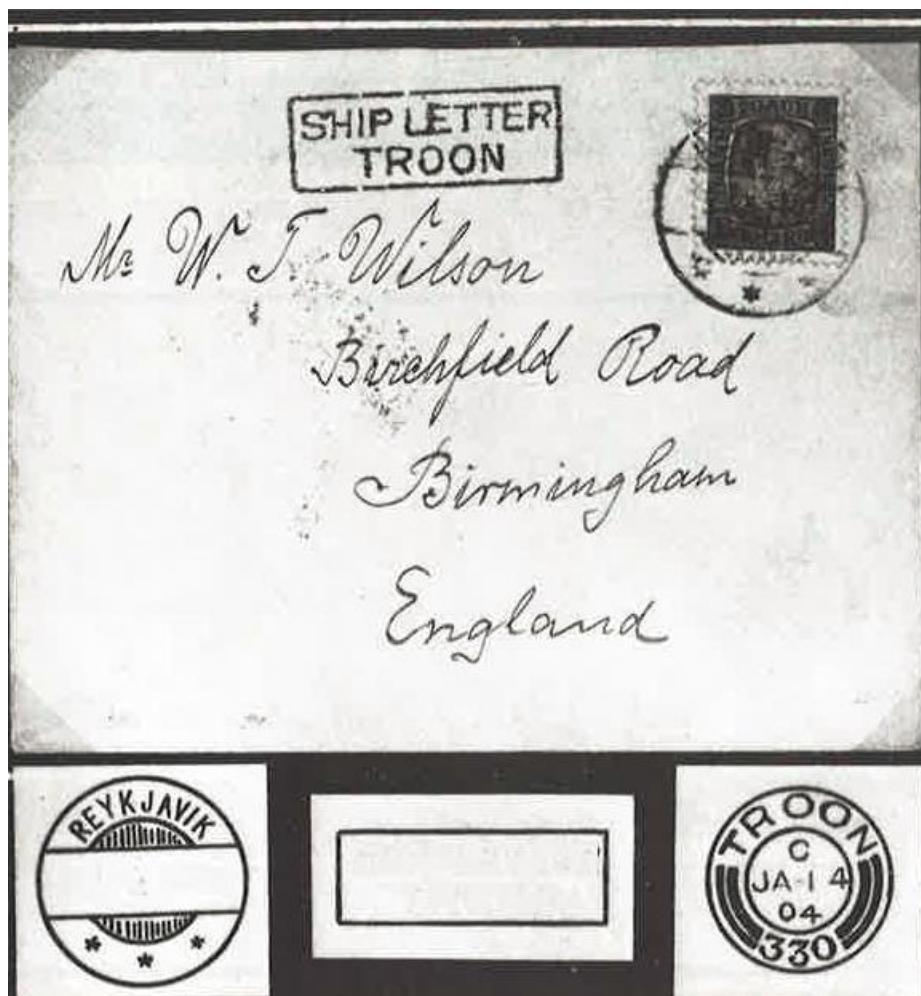 SHIP LETTER
TROON
Mr W. T. Wilson
Birchfield Road
Birmingham
England
REYKJAVIK
TROON
C
JA-14
04
330